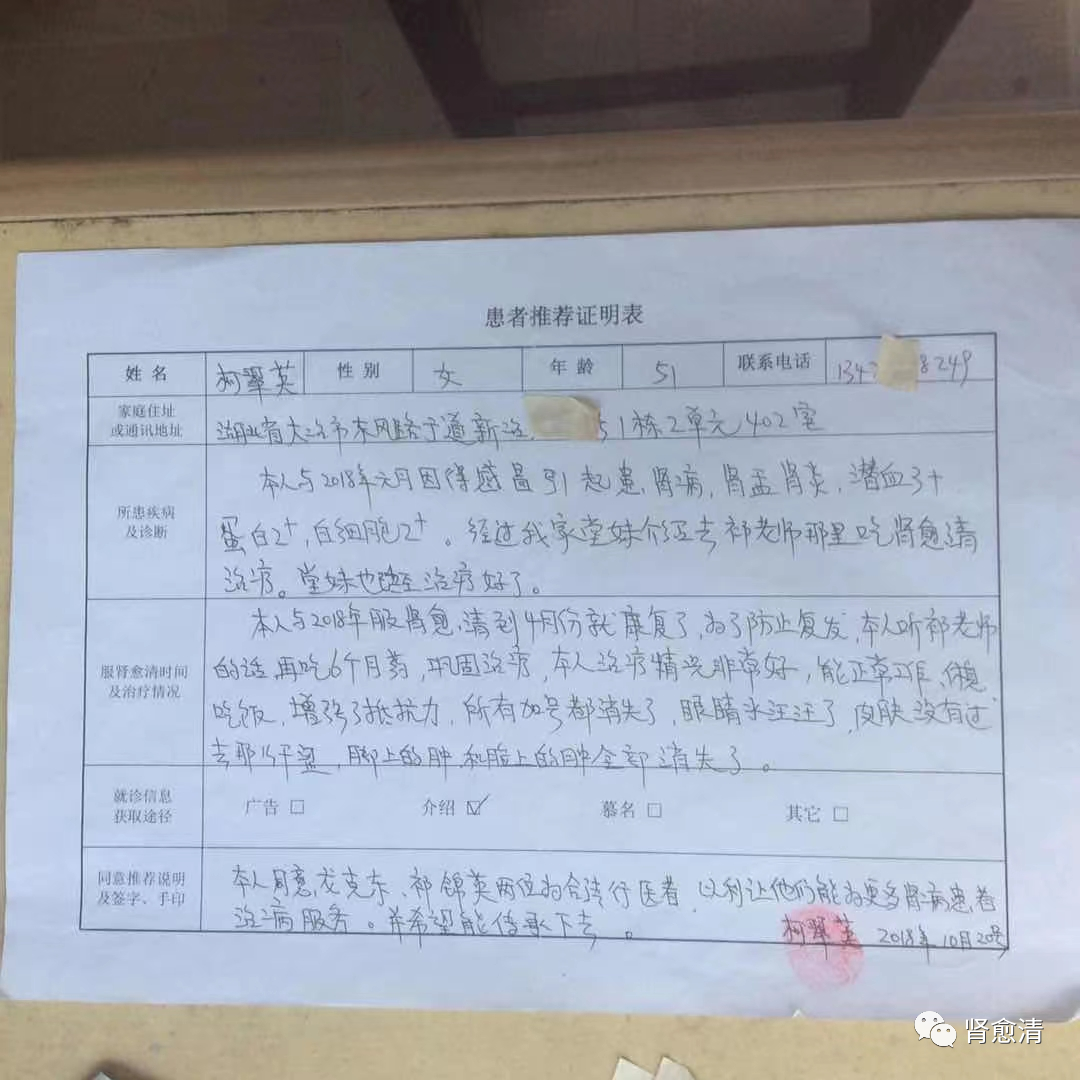 患者推荐证明表
姓 名 柯翠英 性 别 女 年 龄 51 联系电话 1347 8249
家庭住址
或通讯地址
湖北省大冶市东风路 通新 51栋2单元402室
所患疾病
及诊断
本人与2018年元月因得感冒引起患肾病,肾盂肾炎,潜血3+
蛋白2+,白细胞2+。经过我家堂妹介绍去祁老师那里吃肾愈清
治疗。堂妹也 治疗好了。
服肾愈清时间
及治疗情况
本人与2018年服肾愈清到4月份就康复了,为了防止复发,本人听祁老师
的话再吃6个月药,巩固治疗,本人治疗情况非常好,能正常工作、休息
吃饭,增强了抵抗力,所有加号都消失了,眼睛水汪汪了,皮肤没有过
去那么干 ,脚上的肿和脸上的肿全部消失了。
就诊信息
获取途径
广告 □ 介绍 ☑ 慕名 □ 其它 □
同意推荐说明
及签字、手印
本人同意龙克东、祁锦英两位为合法行医者,以利让他们能为更多肾病患者
治病服务。并希望能传承下去。
柯翠英 2018年10月20号
肾愈清